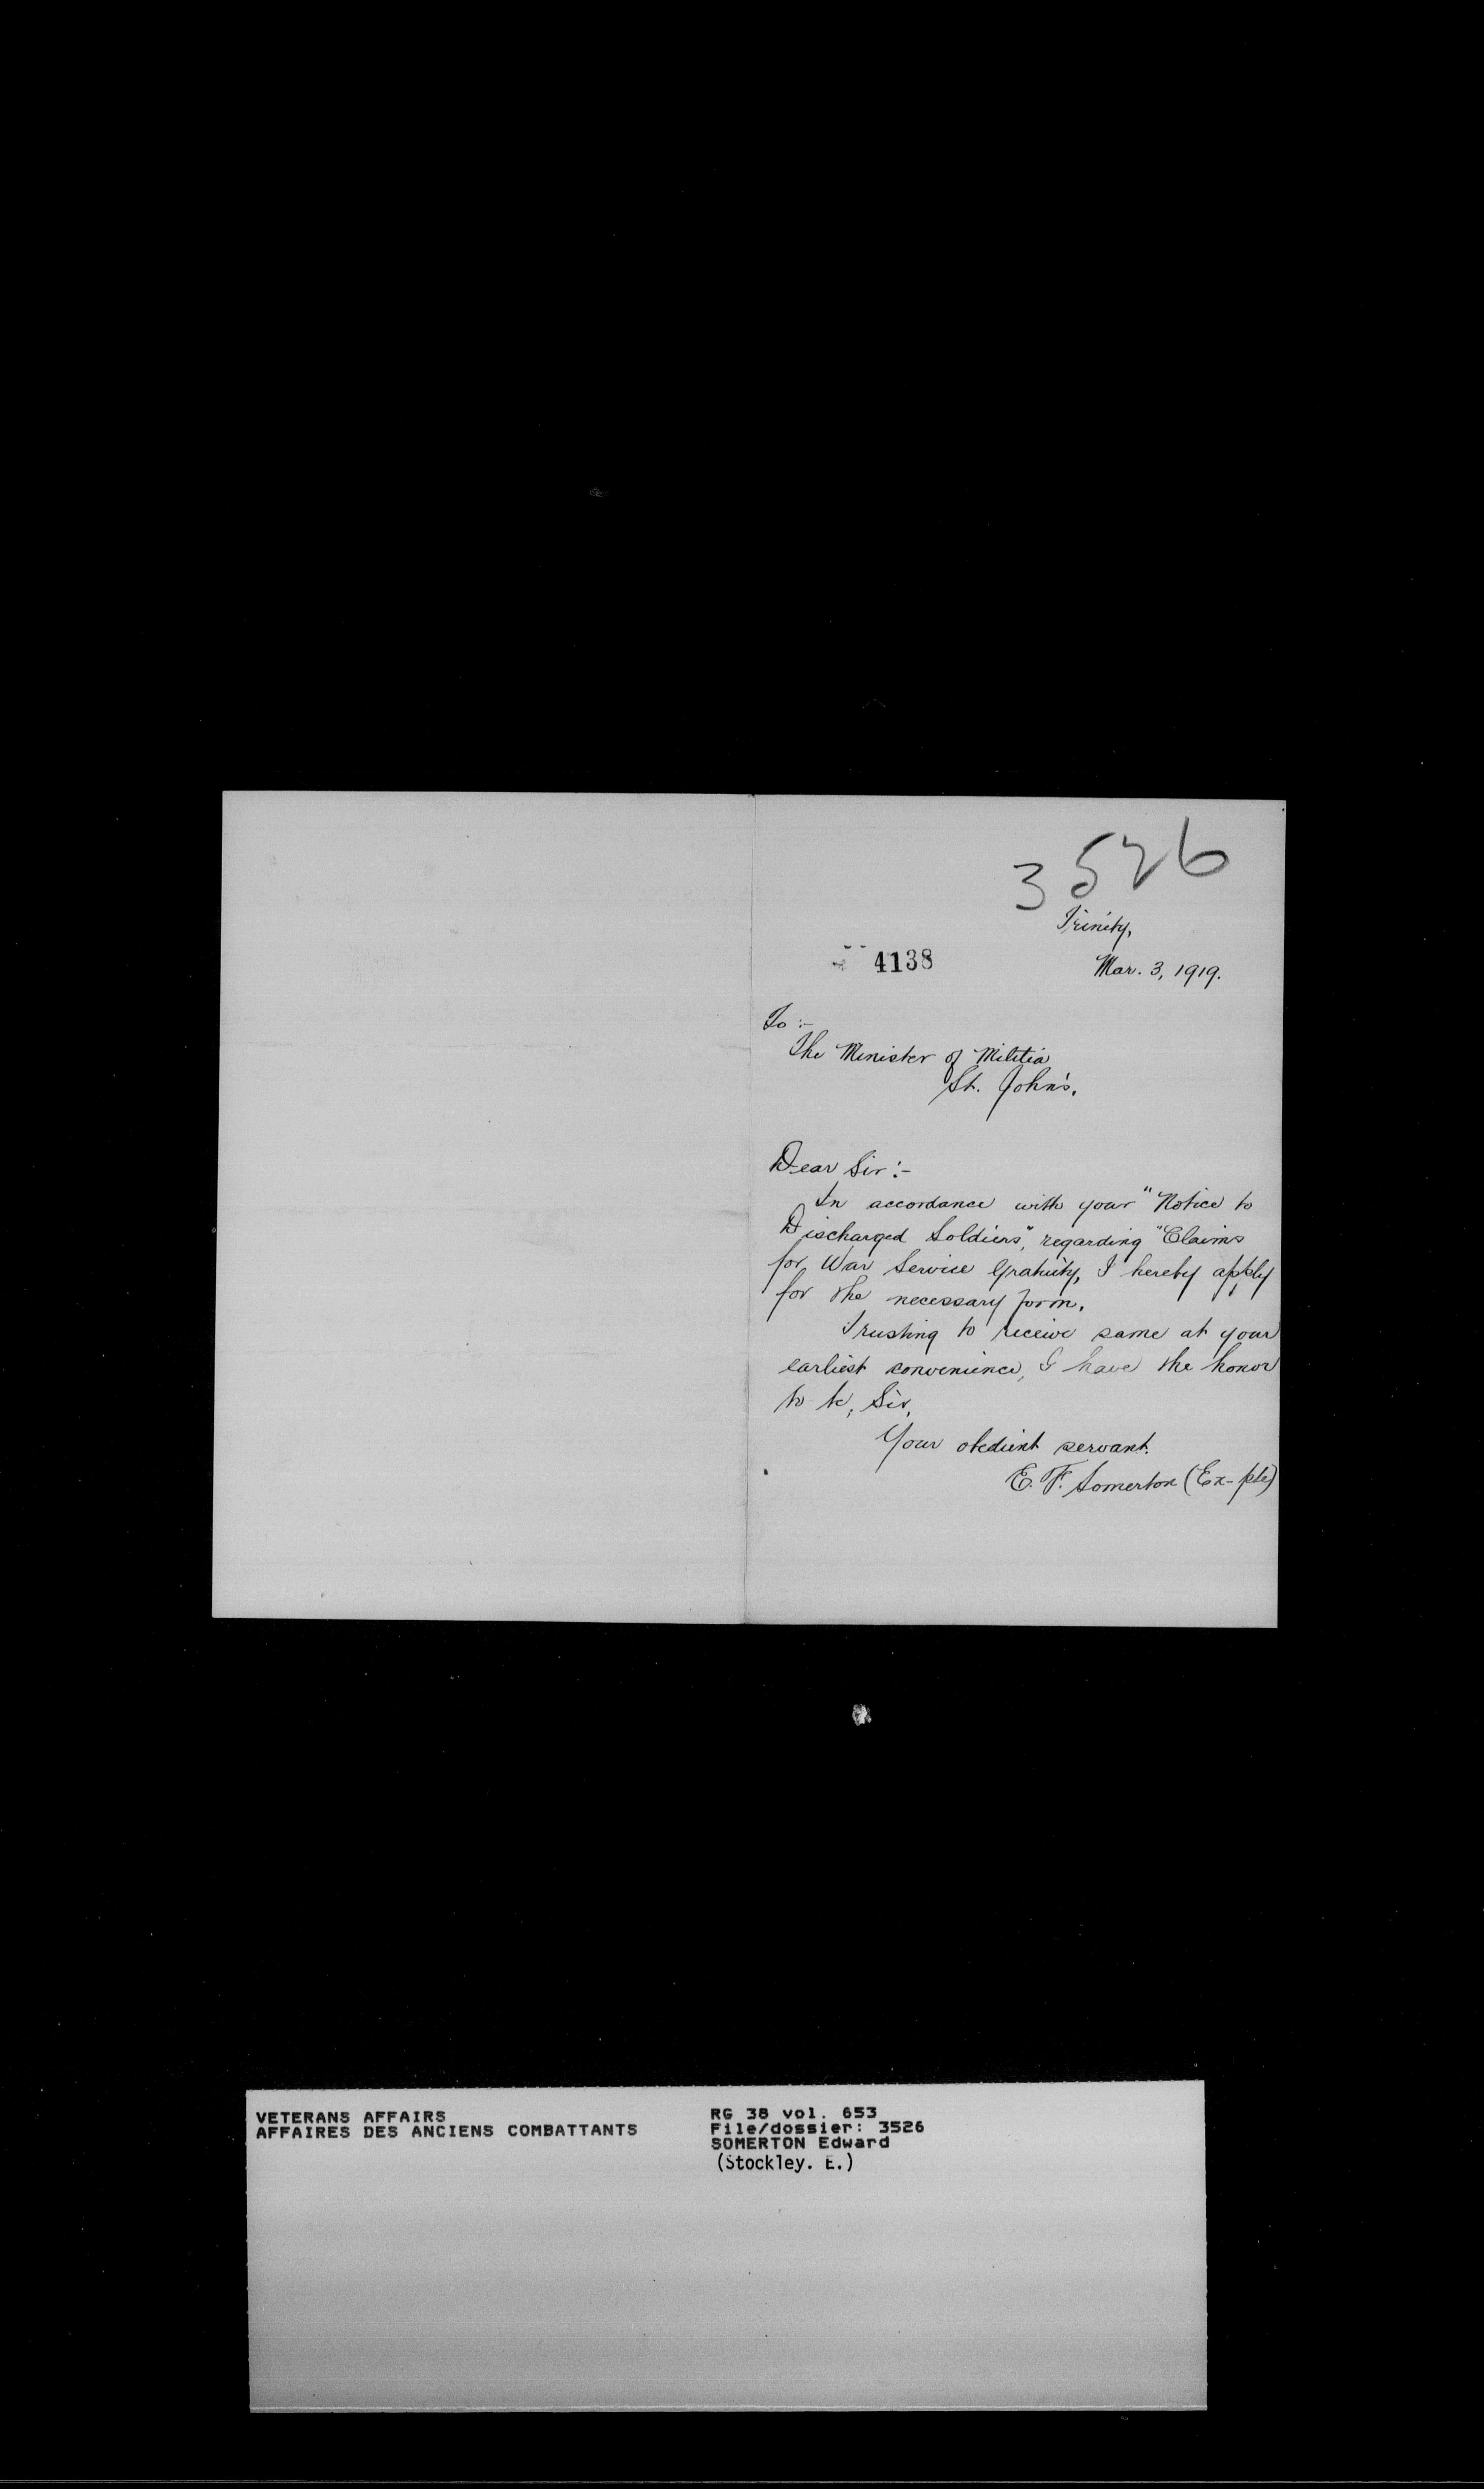 3526
Trinity,
4138
Mar. 3, 1919.
To :-
The Minister of Militia
St. John's.
Dear Sir :-
In accordance with your "Notice to
Discharged Soldiers", regarding "Claims
for War Service Gratuity, I hereby apply
for the necessary form.
Trusting to receive same at your
earliest convenience, I have the honor
to be, Sir,
Your obedient servant.
E. F. Somerton (Ex-pte)
VETERANS AFFAIRS
AFFAIRES DES ANCIENS COMBATTANTS
RG 38 vol. 653
File/dossier: 3526
SOMERTON Edward
(Stockley. E.)